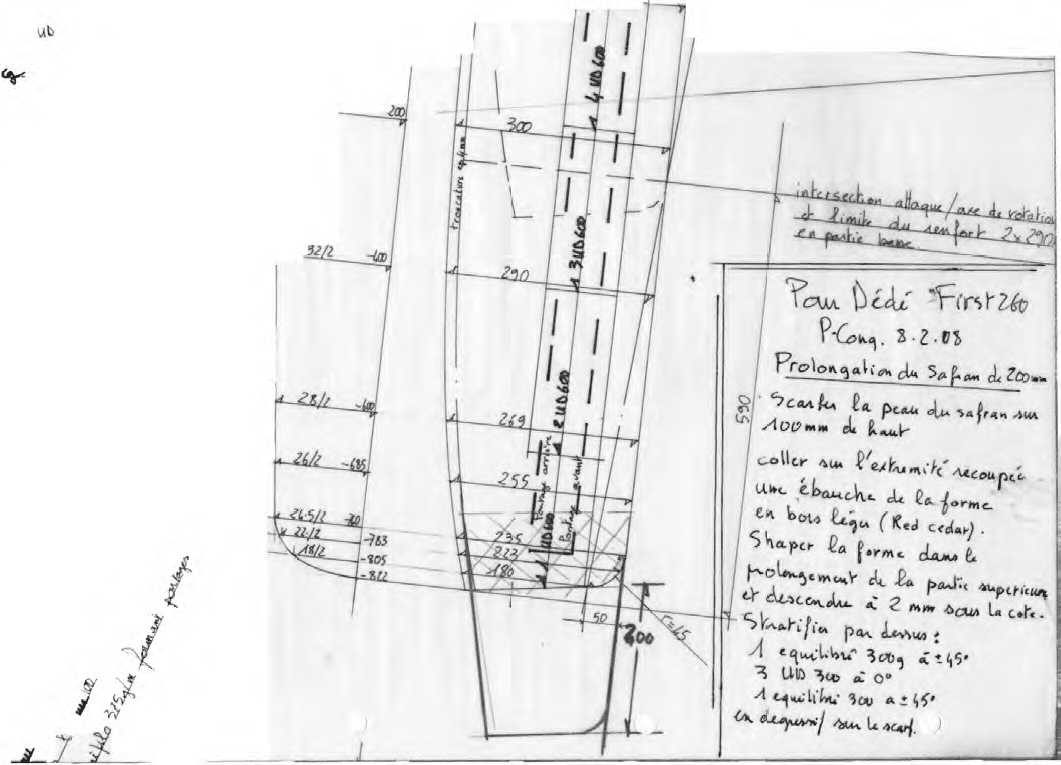 UD
200
300
4 UD 600
troncature ep 4mm
intersection attaque/axe de rotation
et limite du renfort 2x290
en partie basse
32/2 -400
290
3 UD 600
Pour Dédé First 260
P. Conq. 8.2.08
Prolongation du Safran de 200mm
Scarfer la peau du safran sur
100mm de haut
coller sur l'extremité recoupée
une ébauche de la forme
en bois léger (Red cedar).
Shaper la forme dans le
prolongement de la partie superieure
et descendre à 2 mm sous la cote.
Stratifier par dessus :
1 equilibré 300g à ±45°
3 UD 300 à 0°
1 equilibré 300 a ±45°
en degressif sur le scarf.
28/2 -600
269
2 UD 600
590
26/2 -685
255
Portage arrière
Portage avant
24.5/2 -740
235
1 UD 600
22/2 -783
223
18/2 -805
180
-822
50
200
r=45
325g/m formant portages